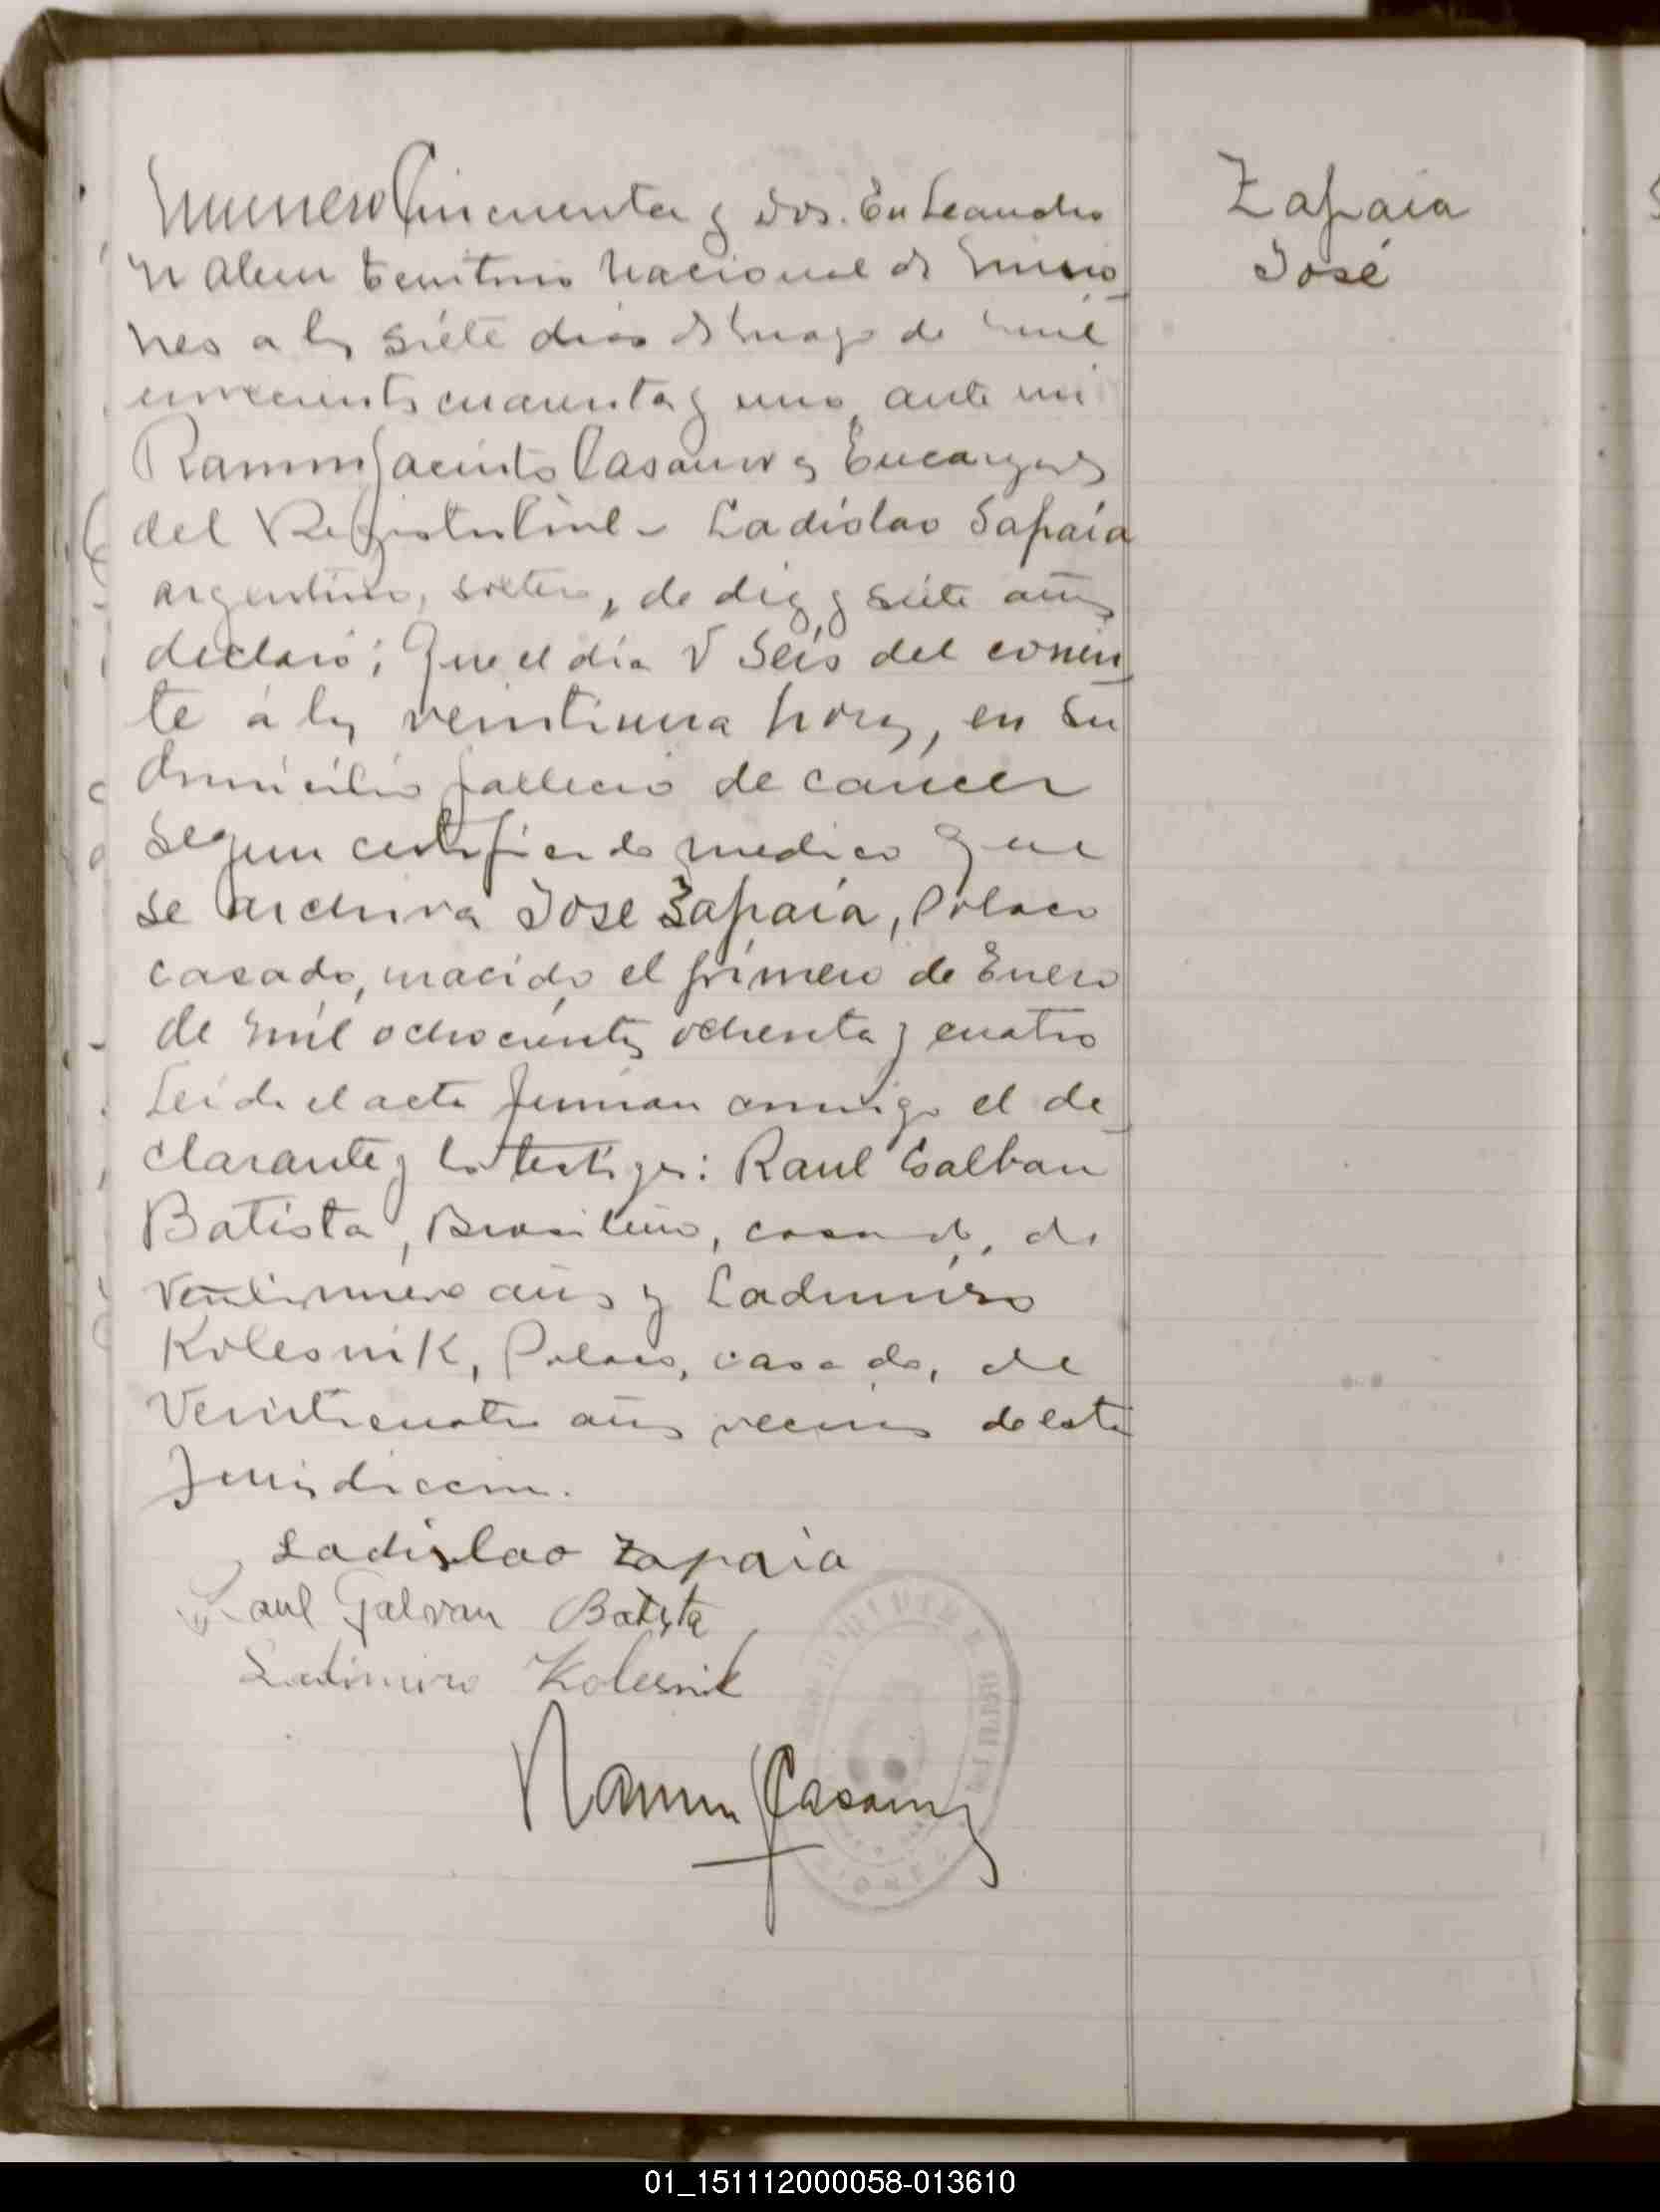 Numero Cincuenta y dos. En Leandro
N Alem Territorio Nacional de Misio
nes a los siete dias de Mayo de mil
novecientos cuarenta y uno, ante mi
Ramon Jacinto Casanova Encargado
del Registro Civil - Ladislao Sapaia
argentino, soltero, de diez y siete años
declaró; Que el día seis del corrien
te á las veintiuna horas, en su
domicilio fallecio de cancer
segun certificado medico que
se archiva José Zapaia, Polaco
casado, nacido el primero de Enero
de mil ochocientos ochenta y cuatro
Leida el acta firman conmigo el de
clarante y los testigos: Raul Galban
Batista, Brasileño, casado, de
años y Ladimiro
Kolesnik, Polaco, casado, de
Veinticuatro años vecinos de esta
Jurisdiccion.
Ladislao Zapaia
Raul Galvan Batista
Ladimiro Kolesnik
Ramon J Casanova
Zapaia
José
01_151112000058-013610